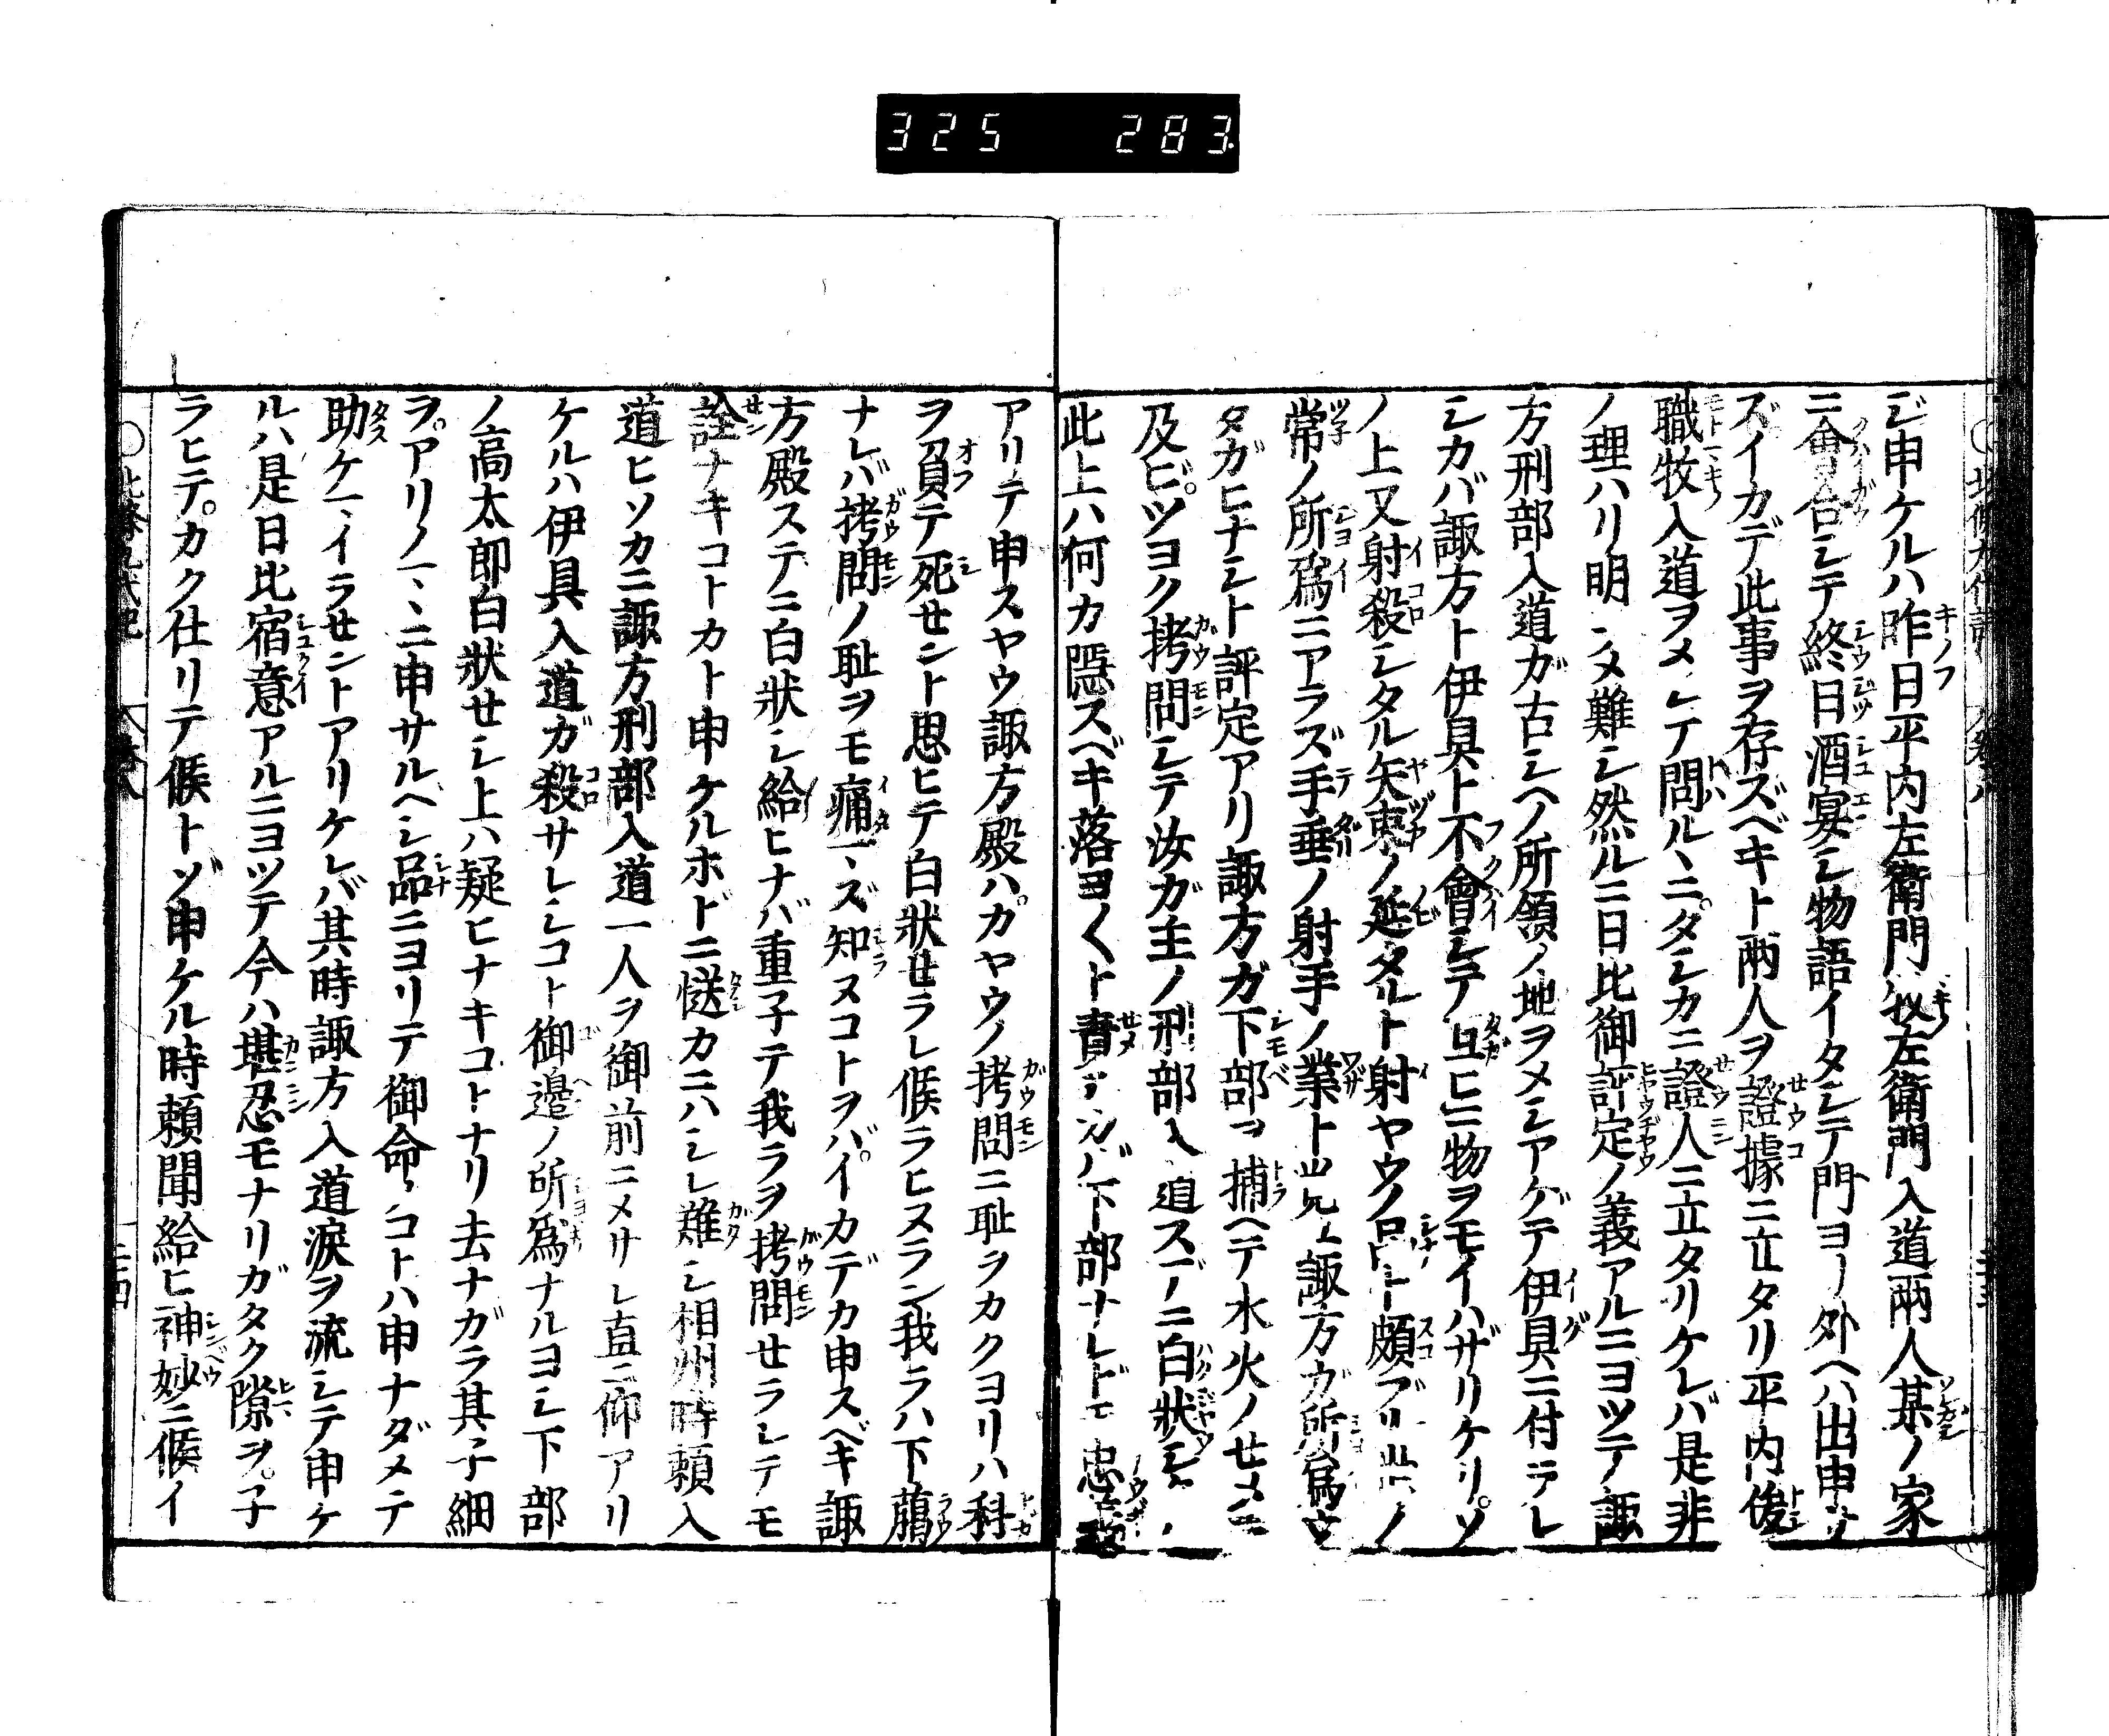 325 283
ジ申ケルハ昨日平内左衛門牧左衛門入道兩人某ノ家
ニ會合シテ終日酒宴シ物語イタシテ門ヨリ外ヘハ出申サ
ズイカデ此事ヲ存ズベキト兩人ヲ證據ニ立タリ平内俊
職牧入道ヲメシテ問ルヽニタシカニ證人ニ立タリケレバ是非
ノ理ハリ明シメ難シ然ルニ日比御評定ノ義アルニヨツテ諏
方刑部入道ガ古シヘノ所領ノ地ヲメシアゲテ伊具ニ付ラレ
シカバ諏方ト伊具ト不會シテ互ヒニ物ヲモイハザリケリソ
ノ上又射殺シタル矢束ノ延タルト射ヤウノ品ト頗ブル世ノ
常ノ所爲ニアラズ手垂ノ射手ノ業ト見ユ諏方ガ所爲ウ
タガヒナシト評定アリ諏方ガ下部ヲ捕ヘテ水火ノせメニ
及ビツヨク拷問シテ汝ガ主ノ刑部入道スデニ白狀シ
此上ハ何カ隱スベキ落ヨ〱ト責テシカバ下部ナレドモ忠
アリテ申スヤウ諏方殿ハカヤウノ拷問ニ耻ヲカクヨリハ科
ヲ負テ死せント思ヒテ白狀せラレ候ラヒスラン我ラハ下﨟
ナレバ拷問ノ耻ヲモ痛マズ知ヌコトヲバイカデカ申スベキ諏
方殿ステニ白狀シ給ヒナバ重子テ我ラヲ拷問せラレテモ
詮ナキコトカト申ケルホドニ慥カニハシレ難シ相州時頼入
道ヒソカニ諏方刑部入道一人ヲ御前ニメサレ直ニ仰アリ
ケルハ伊具入道ガ殺サレシコト御邊ノ所爲ナルヨシ下部
ノ高太郎白狀せシ上ハ疑ヒナキコトナリ去ナガラ其子細
ヲアリノマヽニ申サルヘシ品ニヨリテ御命ノコトハ申ナダメテ
助ケマイラせントアリケレバ其時諏方入道淚ヲ流シテ申ケ
ルハ是日比宿意アルニヨツテ今ハ堪忍モナリガタク隙ヲ子
ラヒテカク仕リテ候トゾ申ケル時頼聞給ヒ神妙ニ候イ